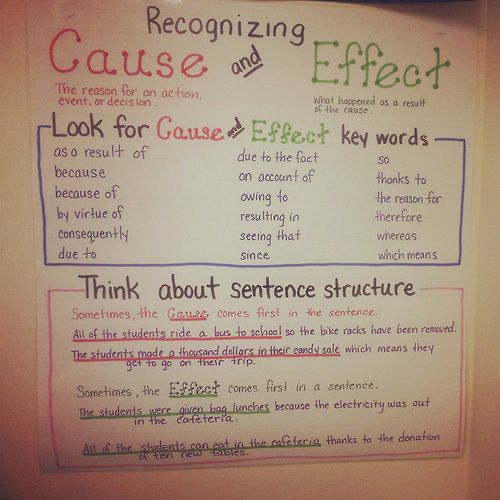 Recognizing
Cause and Effect
The reason for an action,
event, or decision.
What happened as a result
of the cause.
Look for Cause and Effect key words
as a result of
because
because of
by virtue of
consequently
due to
due to the fact
on account of
owing to
resulting in
seeing that
since
so
thanks to
the reason for
therefore
whereas
which means
Think about sentence structure
Sometimes, the Cause comes first in the sentence.
All of the students ride a bus to school so the bike racks have been removed.
The students made a thousand dollars in their candy sale which means they
get to go on their trip.
Sometimes, the Effect comes first in a sentence.
The students were given bag lunches because the electricity was out
in the cafeteria.
All of the students can eat in the cafeteria thanks to the donation
of ten new tables.